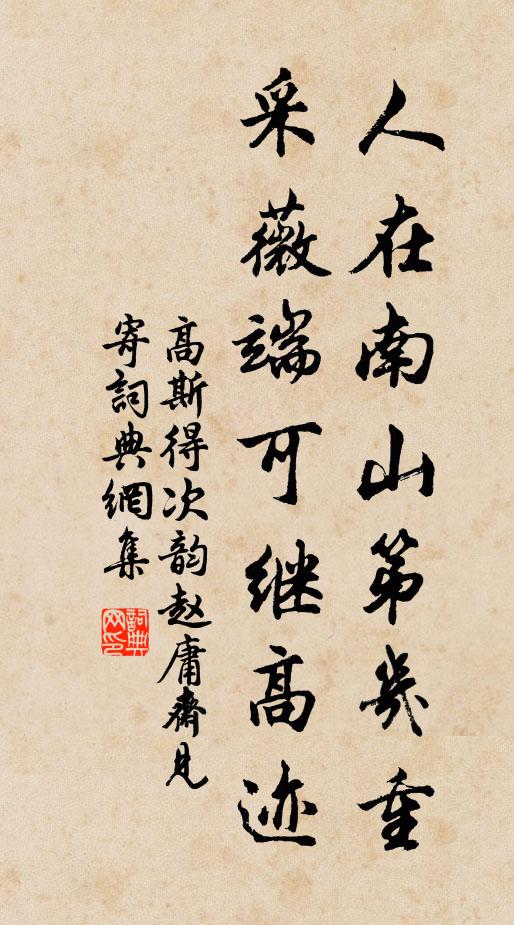 人在南山第幾重
采薇端可继高迹
高斯得次韵赵庸齋見
寄詞典網集
詞典网印